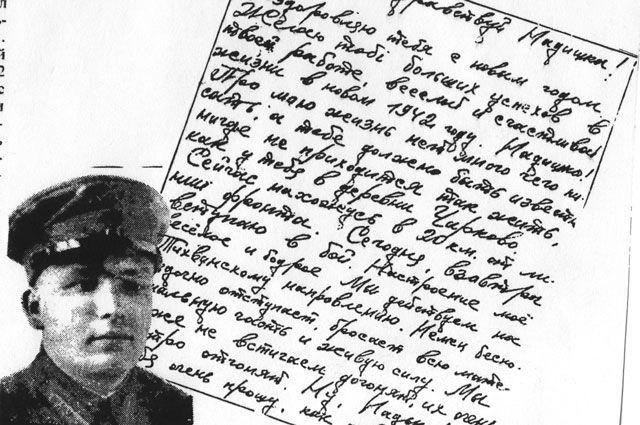 л
г.
й
2
с
и
.
равствуй Надишка!
здоровляю тебя с новым годом
Желаю тобі больших успехов в
твоей работе, веселый и счастливой
жизни в новом 1942 году. Надишка!
Про мою жизнь нет много чего пи-
сать, а тебе должно быть известн
нигде не приходится так жить,
как у тебя в деревни Чирково
Сейчас нахожусь в 20 км. от ли-
нии фронта. Сегодня, взавтра
вступаю в бой. Настроение моё
весёлое и бодрое. Мы действуем на
Тихвинскому напровлению. Немец беспо-
дочно отступает, бросает всю мате-
иальную часть и живую силу. Мы
же не встигаем догонят, их очен
тро отгонят. Ну,
очень прошу, как